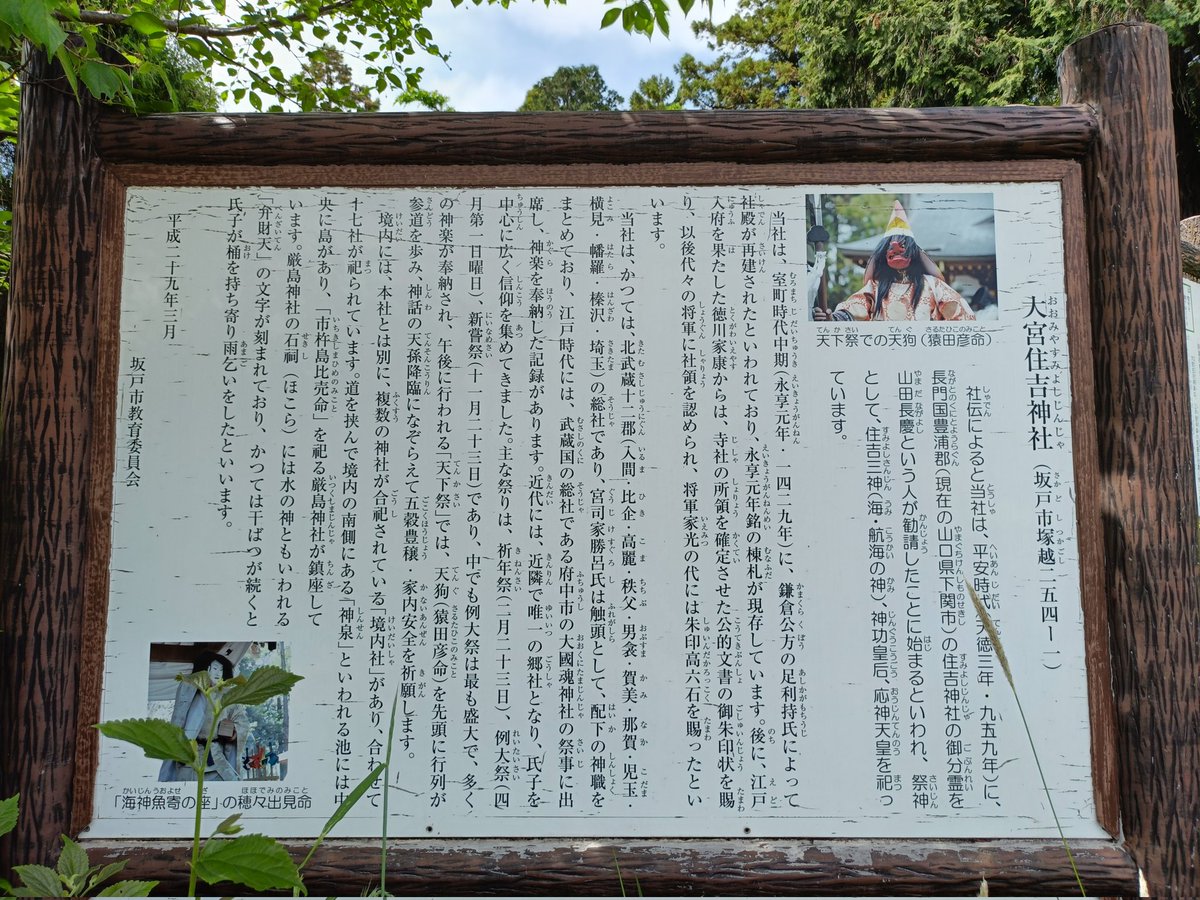 大宮住吉神社(坂戸市塚越二五四ー一)
社伝によると当社は、平安時代(天徳三年・九五九年)に、
長門国豊浦郡(現在の山口県下関市)の住吉神社の御分霊を
山田長慶という人が勧請したことに始まるといわれ、祭神
として、住吉三神(海・航海の神)、神功皇后、応神天皇を祀っ
ています。
天下祭での天狗(猿田彦命)
当社は、室町時代中期(永享元年・一四二九年)に、鎌倉公方の足利持氏によって
社殿が再建されたといわれており、永享元年銘の棟札が現存しています。後に、江戸
入府を果たした徳川家康からは、寺社の所領を確定させた公的文書の御朱印状を賜
り、以後代々の将軍に社領を認められ、将軍家光の代には朱印高六石を賜ったとい
います。
当社は、かつては、北武蔵十二郡(入間・比企・高麗・秩父・男衾・賀美・那賀・児玉
横見・幡羅・榛沢・埼玉)の総社であり、宮司家勝呂氏は触頭として、配下の神職を
まとめており、江戸時代には、武蔵国の総社である府中市の大國魂神社の祭事に出
席し、神楽を奉納した記録があります。近代には、近隣で唯一の郷社となり、氏子を
中心に広く信仰を集めてきました。主な祭りは、祈年祭(二月二十三日)、例大祭(四
月第一日曜日)、新嘗祭(十一月二十三日)であり、中でも例大祭は最も盛大で、多く
の神楽が奉納され、午後に行われる「天下祭」では、天狗(猿田彦命)を先頭に行列が
参道を歩み、神話の天孫降臨になぞらえて五穀豊穣、家内安全を祈願します。
境内には、本社とは別に、複数の神社が合祀されている「境内社」があり、合わせて
十七社が祀られています。道を挟んで境内の南側にある「神泉」といわれる池には中
央に島があり、「市杵島比売命」を祀る厳島神社が鎮座して
います。厳島神社の石祠(ほこら)には水の神ともいわれる
「弁財天」の文字が刻まれており、かつては干ばつが続くと
氏子が桶を持ち寄り雨乞いをしたといいます。
平成二十九年三月
坂戸市教育委員会
「海神魚寄の座」の穂々出見命